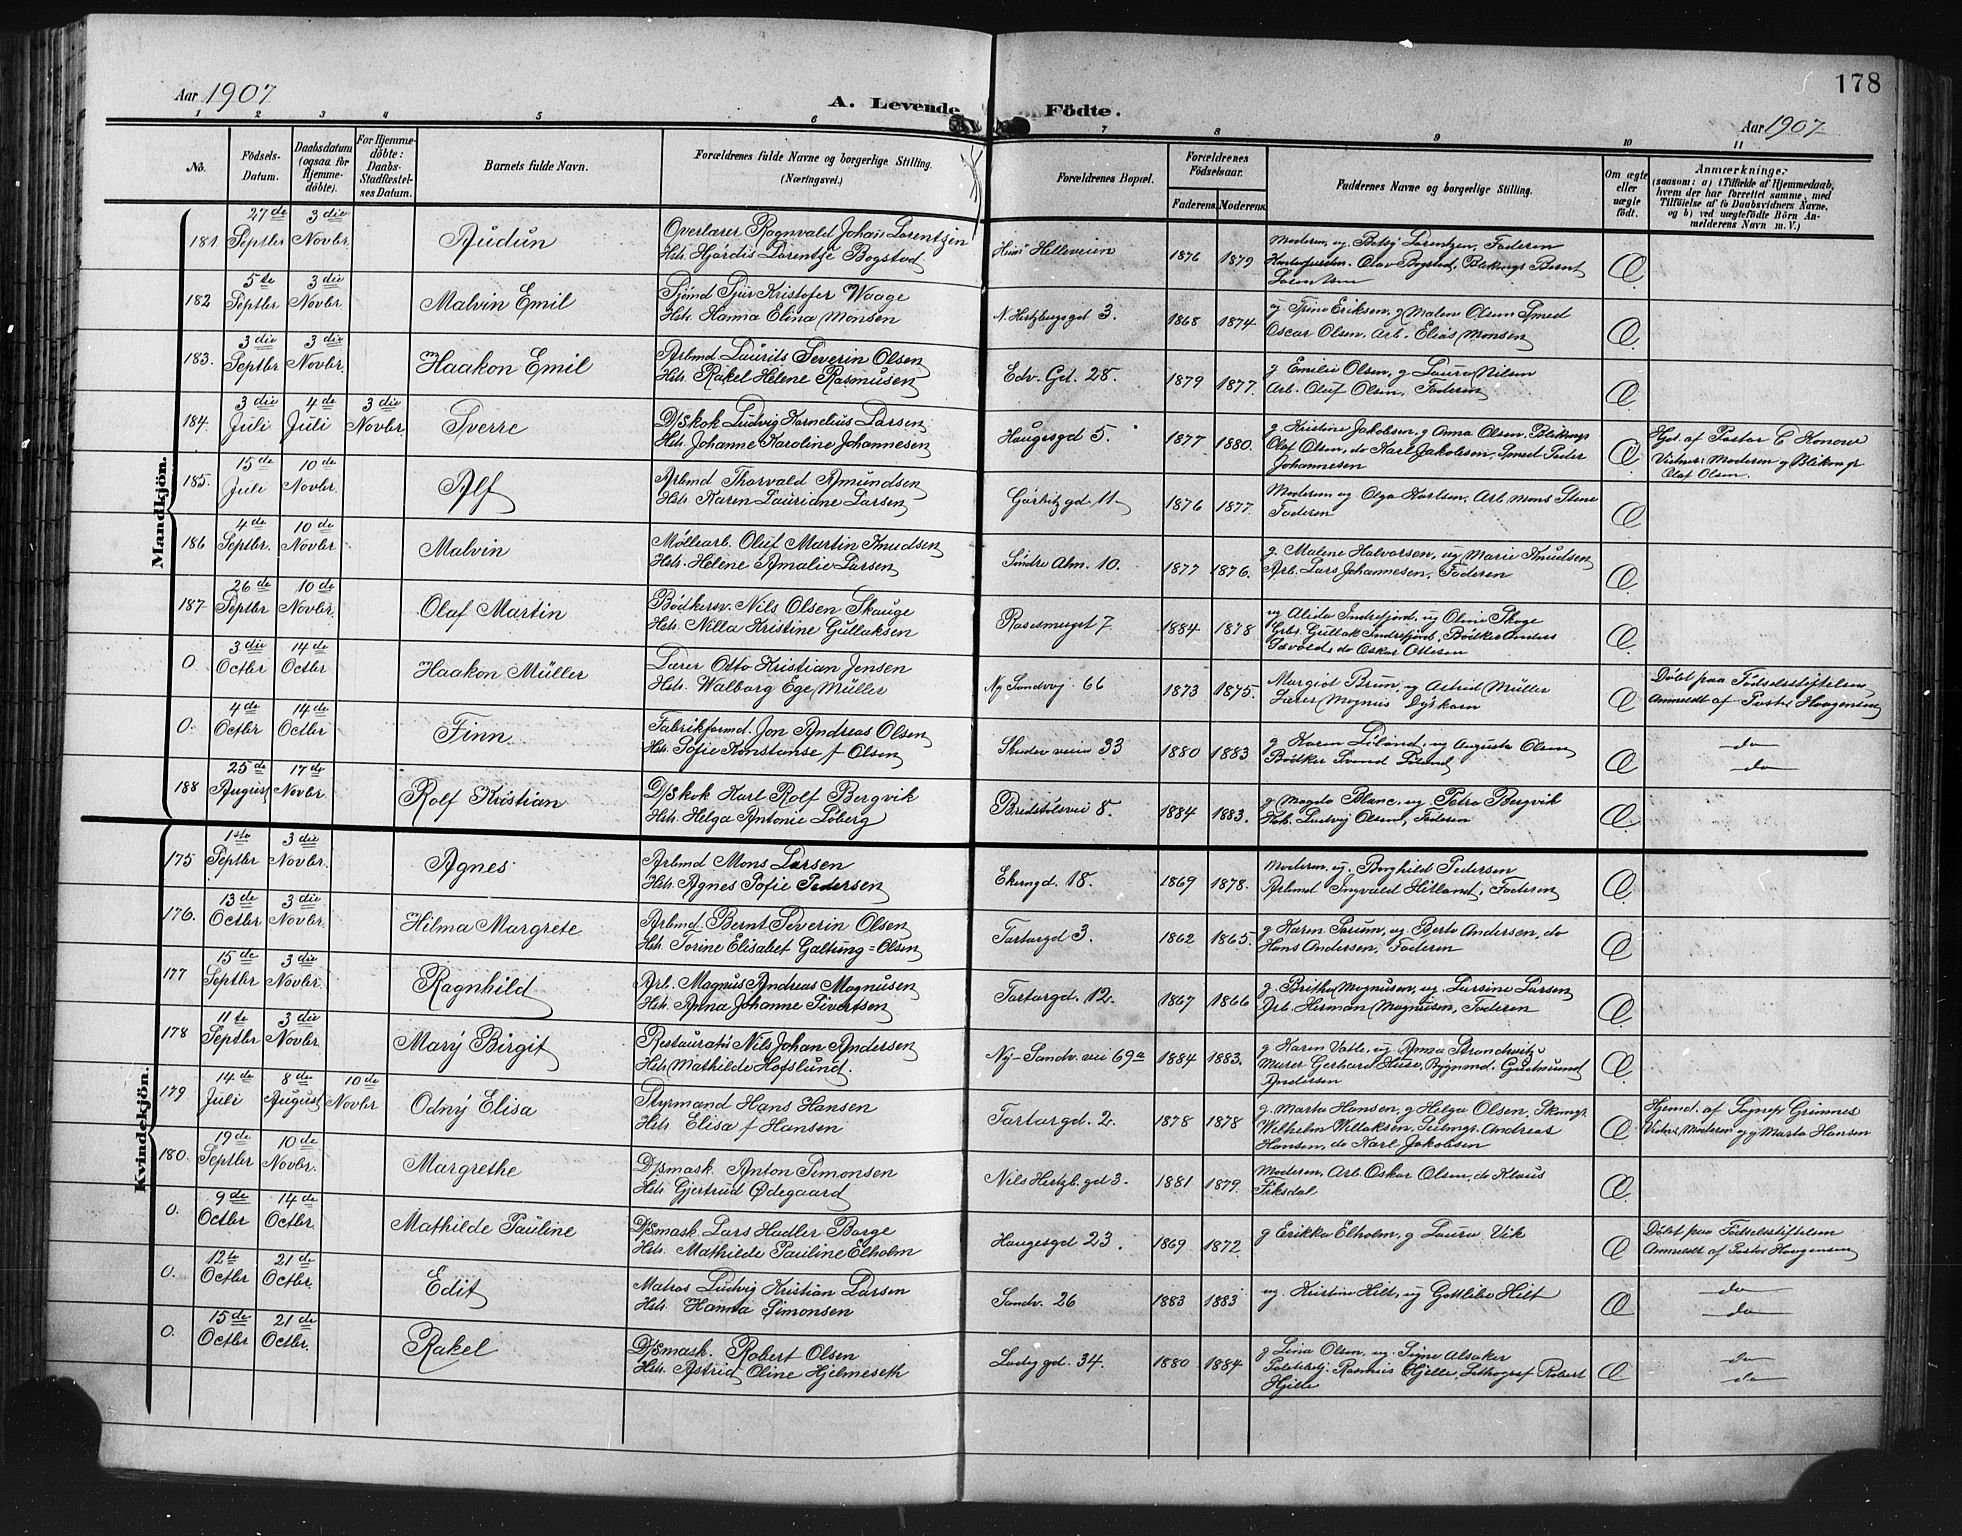 178
Aar 1907
A. Levende Födte.
Aar 1907
1 2 3 4 5 6 7 8 9 10 11
No.
Födsels-Datum.
Daabsdatum (ogsaa for Hjemme-döbte).
For Hjemme-döbte: Daabs-Stadfæstel-ses Datum.
Barnets fulde Navn.
Forældrenes fulde Navne og borgerlige Stilling.
(Næringsvei.)
Forældrenes Bopæl.
Forældrenes Födselsaar.
Faderens. Moderens.
Faddernes Navne og borgerlige Stilling.
Om ægte eller uægte födt.
Anmærkninger
(saasom: a) i Tilfælde af Hjemmedaab,
hvem der har forrettet samme, med
Tilföielse af to Daabsvidners Navne.
og b) ved uægtefödte Börn An-
melderens Navn m. V.)
Mandkjön.
181 27de Septbr 3die Novbr. Audun
Overlærer Ragnvald Johan Lorentzen
Hstr. Hjördis Lorentze Bogstad
Helleveien 1876 1879
Moderen, ug Betsy Lorentzen, Faderen
Olav Bogstad, Blikensl Bernt
Lorentzen
182 5te Septbr 3die Novbr. Malvin Emil
Sjömd Sjur Kristofer Waage
Hstr. Hanna Elina Monsen
N. Hertzbergsgt 3. 1868 1874
Eriksen, g Malene Olsen Smed
Oscar Olsen, Arb. Elias Monsen
183. 3die Septbr 3die Novbr. Haakon Emil
Arbmd Laurits Severin Olsen
Hstr. Rakel Helene Rasmusen
Edv. Gd. 28. 1879 1877
g Emilie Olsen, g Laura Nilsen
Arb. Oluf Olsen, Faderen
184. 3die Juli 4de Juli 3die Novbr. Sverre
D/skok Ludvig Kornelius Larsen
Hstr. Johanne Karoline Johannesen
Haugesgd 5. 1877 1880.
g. Kristine Jakobsen, g Anna Olsen, Blikensl
Olaf Olsen, do Karl Jakobsen, Smed Peder
Johannesen
Hjd. af Pastor C Konow
Vidner: Moderen g Blikensl
Olaf Olsen.
185. 15de Juli 10de Novbr. Alf
Arbmd Thorvald Amundsen
Hstr. Karen Lauriane Larsen
Görbitzgd 11. 1876 1877.
Moderen ug Olga Karlsen, Arb Mons Stene
Faderen
186 4de Septbr. 10de Novbr. Malvin
Møllearb. Oluf Martin Knudsen
Hstr. Helene Amalie Larsen
Søndre Alm. 10. 1877 1876.
g. Malene Halvorsen, ug Marie Knudsen
Arb. Lars Johannesen, Faderen
187. 26de Septbr 10de Novbr. Olaf Martin
Bödkersv. Nils Olsen Skauge
Hstr. Nilla Kristine Gullaksen
7. 1884 1878
ug Alida Indrefjord, ug Oline Skoge
Gullak Indrefjord, Bödker Anders
Sævold, do Oskar Ottesen
0 3die Octbr 14de Octbr Haakon Müller
Lærer Otto Kristian Jensen
Hstr. Walborg Ege Müller
Ny Sandvvj. 66 1873 1875.
Margit Brun, ug Astrid Müller
Lærer Magnus Dyrkorn
Døbt paa Fødselsstiftelsen
Anmeldt af Pastor Haagensen
0. 4de Octbr 14de Octbr Finn
Fabrikformd. Jon Andreas Olsen
Hstr. Sofie Konstanse f Olsen
33 1880 1883
g Karen Løland, ug Augusta Olsen
Bödker Svend Løland
do
do
188 25de August 17de Novbr. Rolf Kristian
D/skok Karl Rolf Bergvik
Hstr. Helga Antonie Loberg
8. 1884 1883.
g Magda Blanc, ug Petra Bergvik
Ludvig Olsen, Faderen
Kvindekjön.
175 1ste Septbr 3die Novbr. Agnes
Arbmd Mons Larsen
Hstr. Agnes Sofie Pedersen
Ekerngd. 18. 1869 1878.
Moderen, ug. Borghild Pedersen
Arbmd Ingvald Hitland, Faderen
176. 13de Octbr 3die Novbr. Hilma Margrete
Arbmd. Bernt Severin Olsen
Hstr. Torine Elisabet Galtung=Olsen
Tartargd 3. 1862 1865.
g Karen Sørum, ug Berta Andersen, do
Hans Andersen, Faderen
177 15de Septbr 3die Novbr. Ragnhild
Arb. Magnus Andreas Magnusen
Hstr. Anna Johanne Sivertsen
Tartargd. 12. 1867 1866
g. Britha Magnusen, ug. Larsine Larsen
Arb. Herman Magnusen, Faderen
178 11te Septbr 3die Novbr. Mary Birgit
Restauratör Nils Johan Andersen
Hstr. Mathilde Hofslund.
Ny-Sandv. vei 69a 1884 1883.
g Karen Vatle, ug Anna
Murer Gerhard Huse, Bygnmd. Gudmund
Andersen
179 14de Juli 8de August 10de Novbr Odny Elisa
Styrmand Hans Hansen
Hstr. Elisa f Hansen
Tartargd. 2. 1878 1878
g. Marta Hansen, g Helga Olsen,
Wilhelm Willaksen, Andreas
Hansen, do Karl Jakobsen
Hjemd. af Sognepr Grimnes
Vidner Moderen og g Marta Hansen
180. 19de Septbr 10de Novbr. Margrethe
D/smask. Anton Simonsen
Hstr. Gjertrud Ødegaard
Nils Hertzb. gd 3. 1881 1879.
Moderen, Arb. Oskar Olsen, do Klaus
Fiksdal
0. 9de Octbr 14de Octbr. Mathilde Pauline
D/smask. Lars Hadler Borge
Hstr. Mathilde Pauline Elholm
Haugesgd 23. 1869 1872.
g Erikka Elholm, g Laura Vik
Døbt paa Fødselsstiftelsen
Anmeldt af Pastor Haagensen
0. 12te Octbr 21de Octbr. Edit
Matros Ludvig Kristian Larsen
Hstr. Hanna Simonsen
Sandv. 26 1883 1883
ug. Kristine Hilt, ug Gottliba Hilt
do
do
0. 15de Octbr 21de Octbr. Rakel
D/smask. Robert Olsen
Hstr. Astrid Oline Hjelmeseth
Lodg gd. 34. 1880 1884
g Lina Olsen, ug. Signe Alsaker
Rasmus Hjelle, Lithograf Robert
Hjelle
do
do